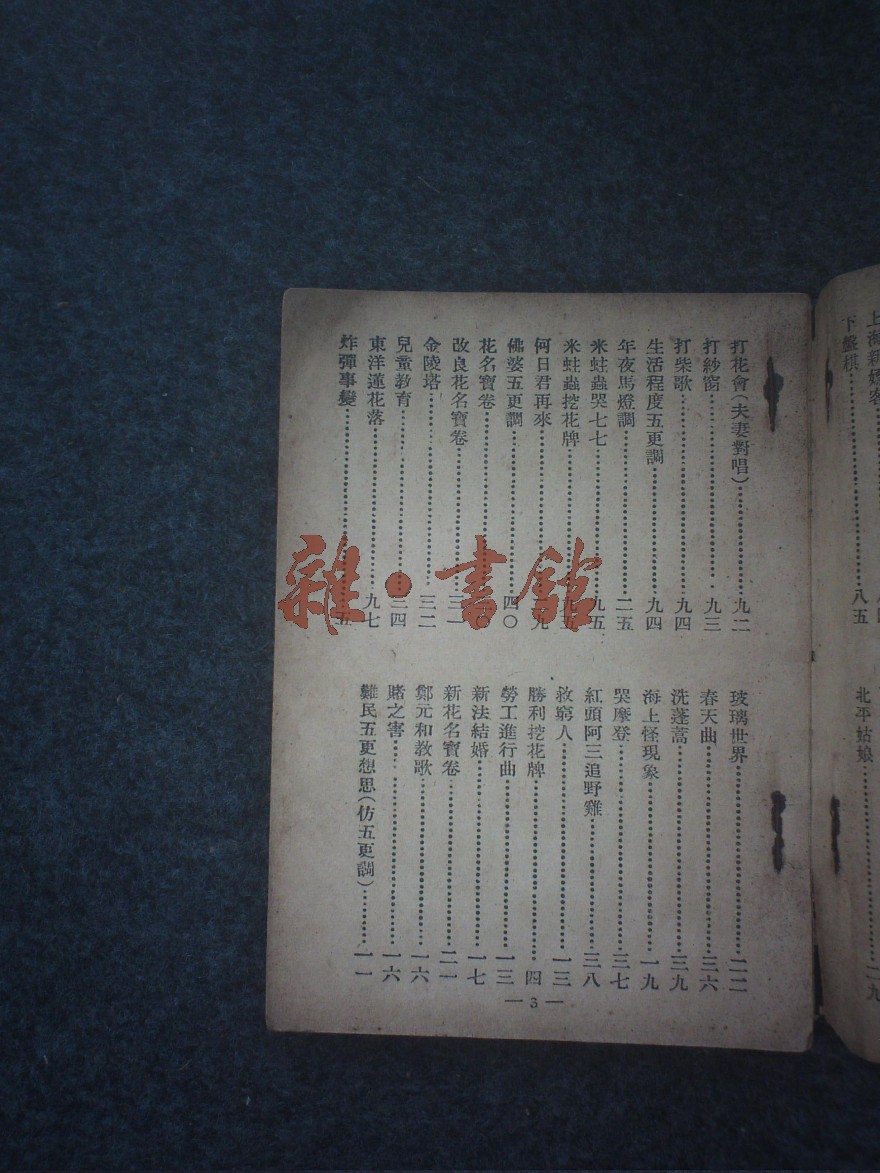 上海新嫖客
下盤棋……八五
北平姑娘……二九
打花會(夫妻對唱)……九二
打紗窗……九三
打柴歌……九四
生活程度五更調……九四
年夜馬燈調……二五
米蛀蟲哭七七……九五
米蛀蟲挖花牌……九五
何日君再來……九
佛婆五更調……四〇
花名寶卷……〇
改良花名寶卷……三一
金陵塔……三二
兒童教育……三四
東洋蓮花落……九七
炸彈事變……五
玻璃世界……二二
春天曲……三六
洗蓬蓄……三九
海上怪現象……一九
哭摩登……三七
紅頭阿三追野雞……三八
救窮人……一三
勝利挖花牌……四
勞工進行曲……一三
新法結婚……一七
新花名寶卷……二一
鄭元和教歌……一六
賭之害……一六
難民五更想思(仿五更調)……一一
— 3 —
雜·書館